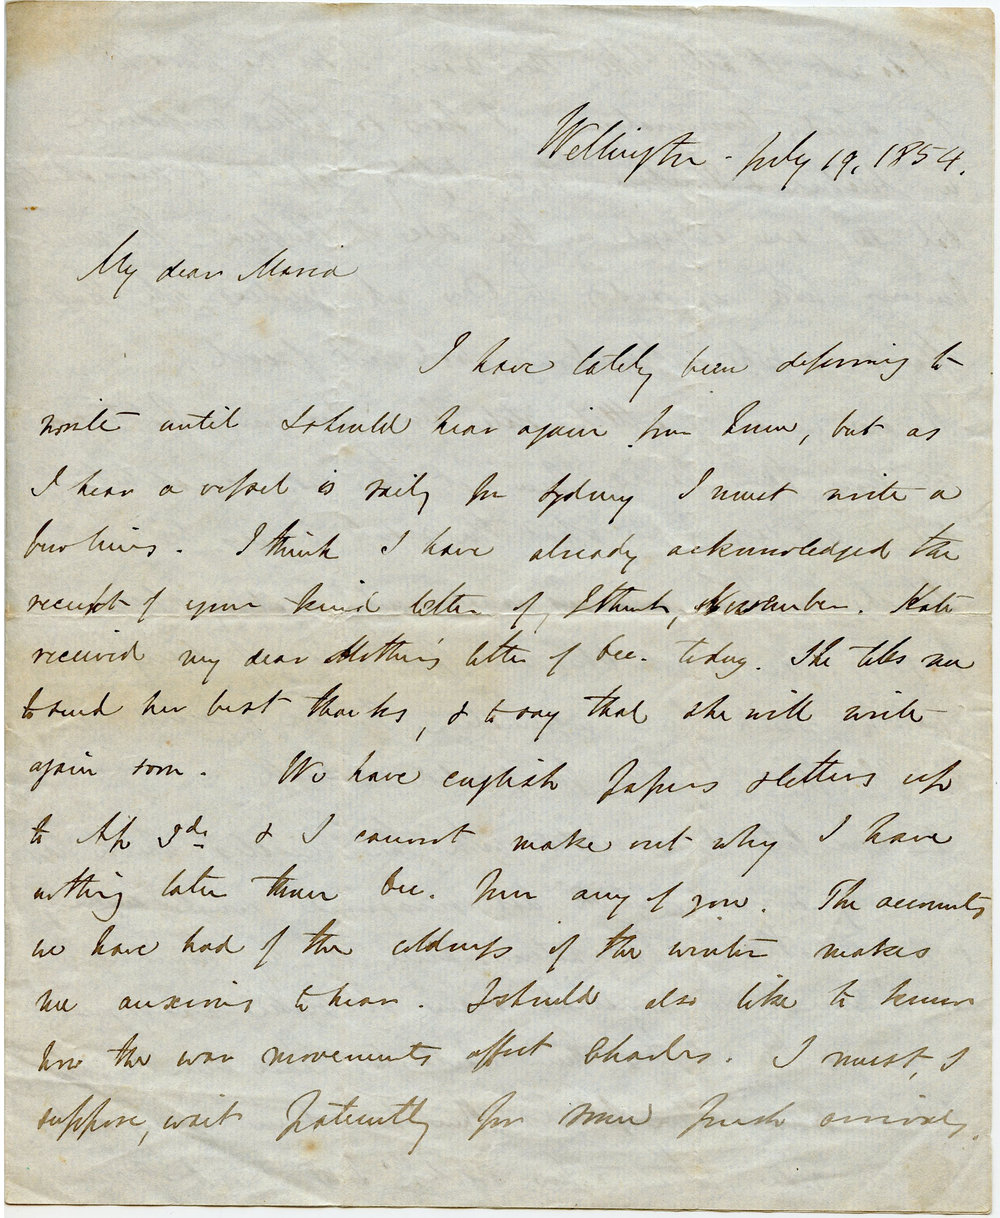 Wellington - July 19, 1854.
My dear Maria
I have lately been deferring to
write until I should hear again from home, but as
I hear a vessel is sailg for Sydney I must write a
few lines. I think I have already acknowledged the
receipt of your kind letter of, I think, November. Kate
received my dear Mother's letter of Dec. today. She tells me
to send her best thanks, & to say that she will write
again soon. We have english papers & letters up
to Ap 3d. & I cannot make out why I have
nothing later than Dec. from any of you. The accounts
we have had of the coldness of the winter makes
me anxious to hear. I should also like to know
how the war movements affect Charles. I must, I
suppose, wait patiently for some fresh arrivals.